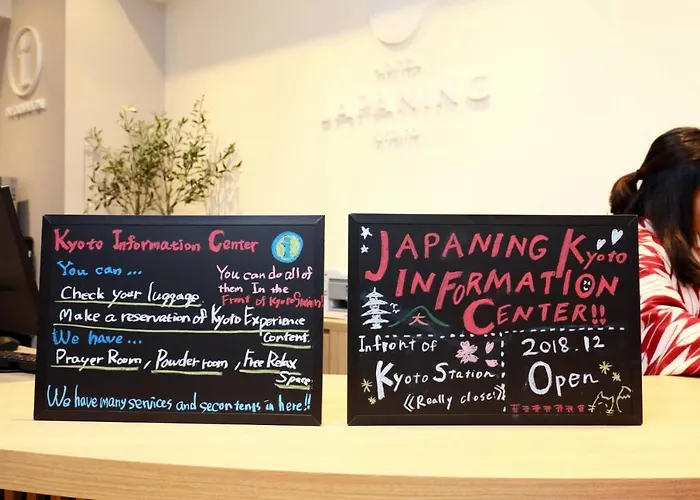 JAPANING
Kyoto Information Center
You can ...
Check your luggage.
Make a reservation of Kyoto Experience
Content.
You can do all of
them In the
Front of Kyoto Station!
We have...
Prayer Room, Powder room, Free Relax
Space.
We have many services and secontents in here!!
JAPANING Kyoto
INFORMATION
CENTER!!
Infront of
Kyoto Station
《Really close!》
2018.12
Open